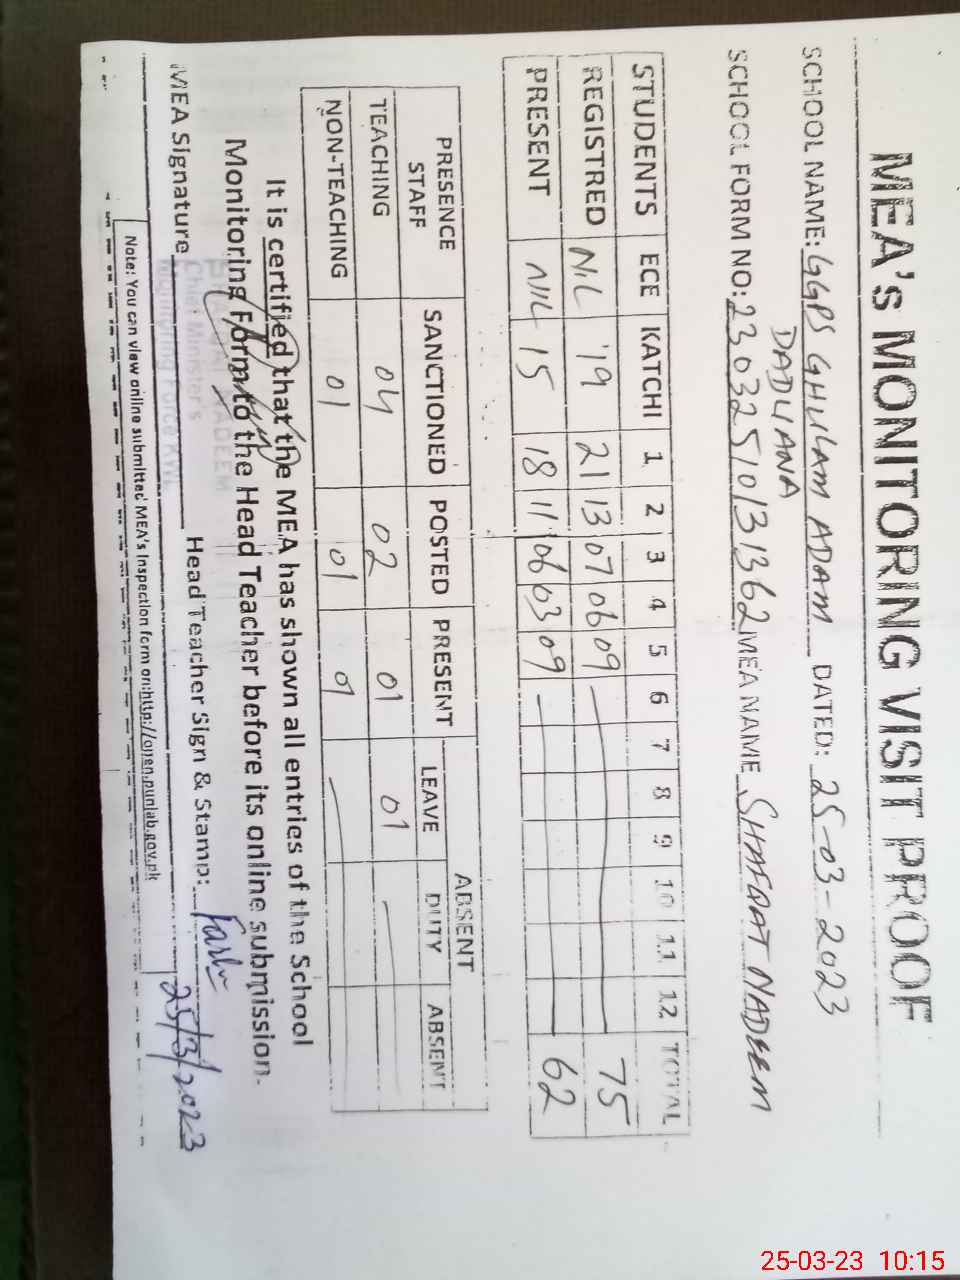 MEA's MONITORING VISIT PROOF
SCHOOL NAME: GGPS GHULAM ADAM DATED: 25-03-2023
DADUANA
SCHOOL FORM NO: 23032510131362 MEA NAME SHAFQAT NADEEM
STUDENTS ECE KATCHI 1 2 3 4 5 6 7 8 9 10 11 12 TOTAL
REGISTRED NIL 19 21 13 07 06 09 75
PRESENT NIL 15 18 11 06 03 09 62
PRESENCE STAFF SANCTIONED POSTED PRESENT ABSENT
LEAVE DUTY ABSENT
TEACHING 04 02 01 01
NON-TEACHING 01 01 01
It is certified that the MEA has shown all entries of the School
Monitoring Form to the Head Teacher before its online submission.
MEA Signature Head Teacher Sign & Stamp:
25/3/2023
NADEEM
Chief Minister's
Monitoring Force
Note: You can view online submitted MEA's Inspection form on:http://open.punjab.gov.pk
25-03-23 10:15